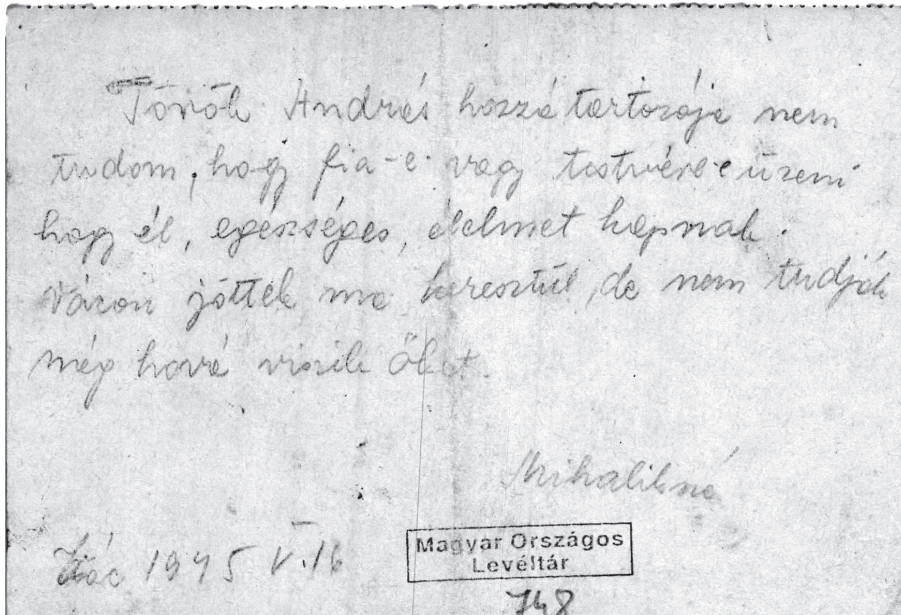 Török András hozzátartozója nem
tudom, hogy fia-e vagy testvére-e üzeni
hogy él, egészséges, élelmet kapnak.
Vácon jöttek ma keresztül, de nem tudják
még hová viszik őket.
Mihalikné
Vác 1945 V.16
Magyar Országos
Levéltár
748